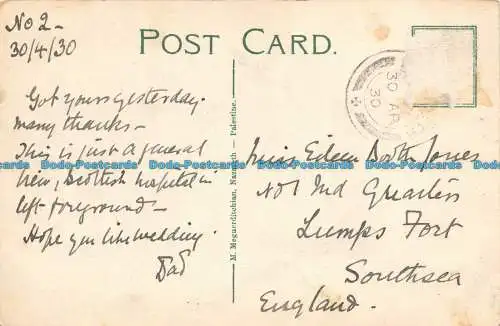 No 2 -
30/4/30
POST CARD.
Got yours yesterday.
many thanks -
This is just a general
view, Scottish hospital in
left foreground -
Hope you like wedding.
Dad
M. Meguerditchian, Nazareth — Palestine.
30 AP
30
Miss Eileen Jones
No 1 Quarters
Lumps Fort
Southsea
England.
Postcards Postcards Postcards Postcards Postcards